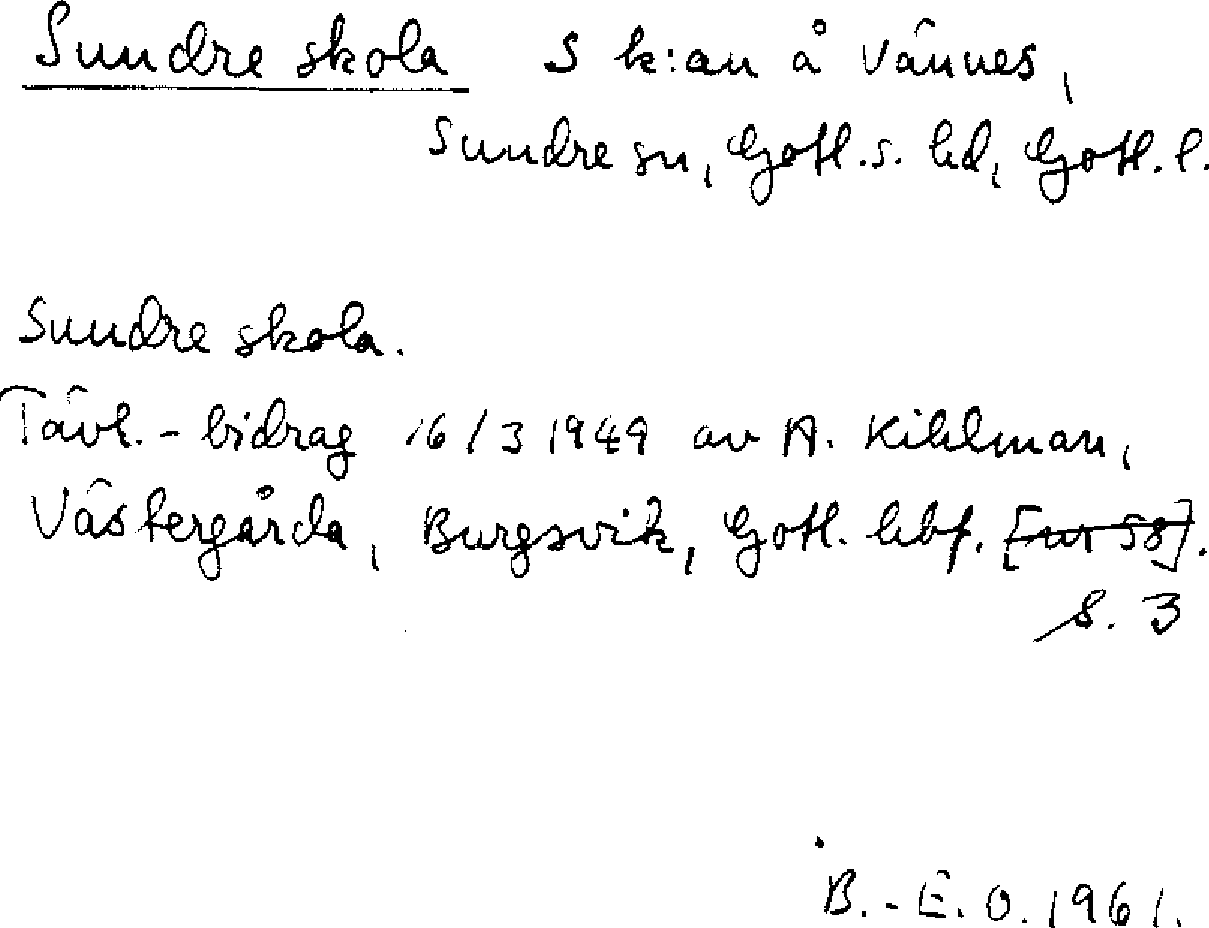 Sundre skola S k:an å Vännes,
Sundre sn, Gotl.s. hd, Gotl.l.
Sundre skola.
Tävl.-bidrag 16/3 1949 av A. Kihlman,
Västergårda, Burgsvik, Gotl. hbf.
s. 3
B.-E.O. 1961.